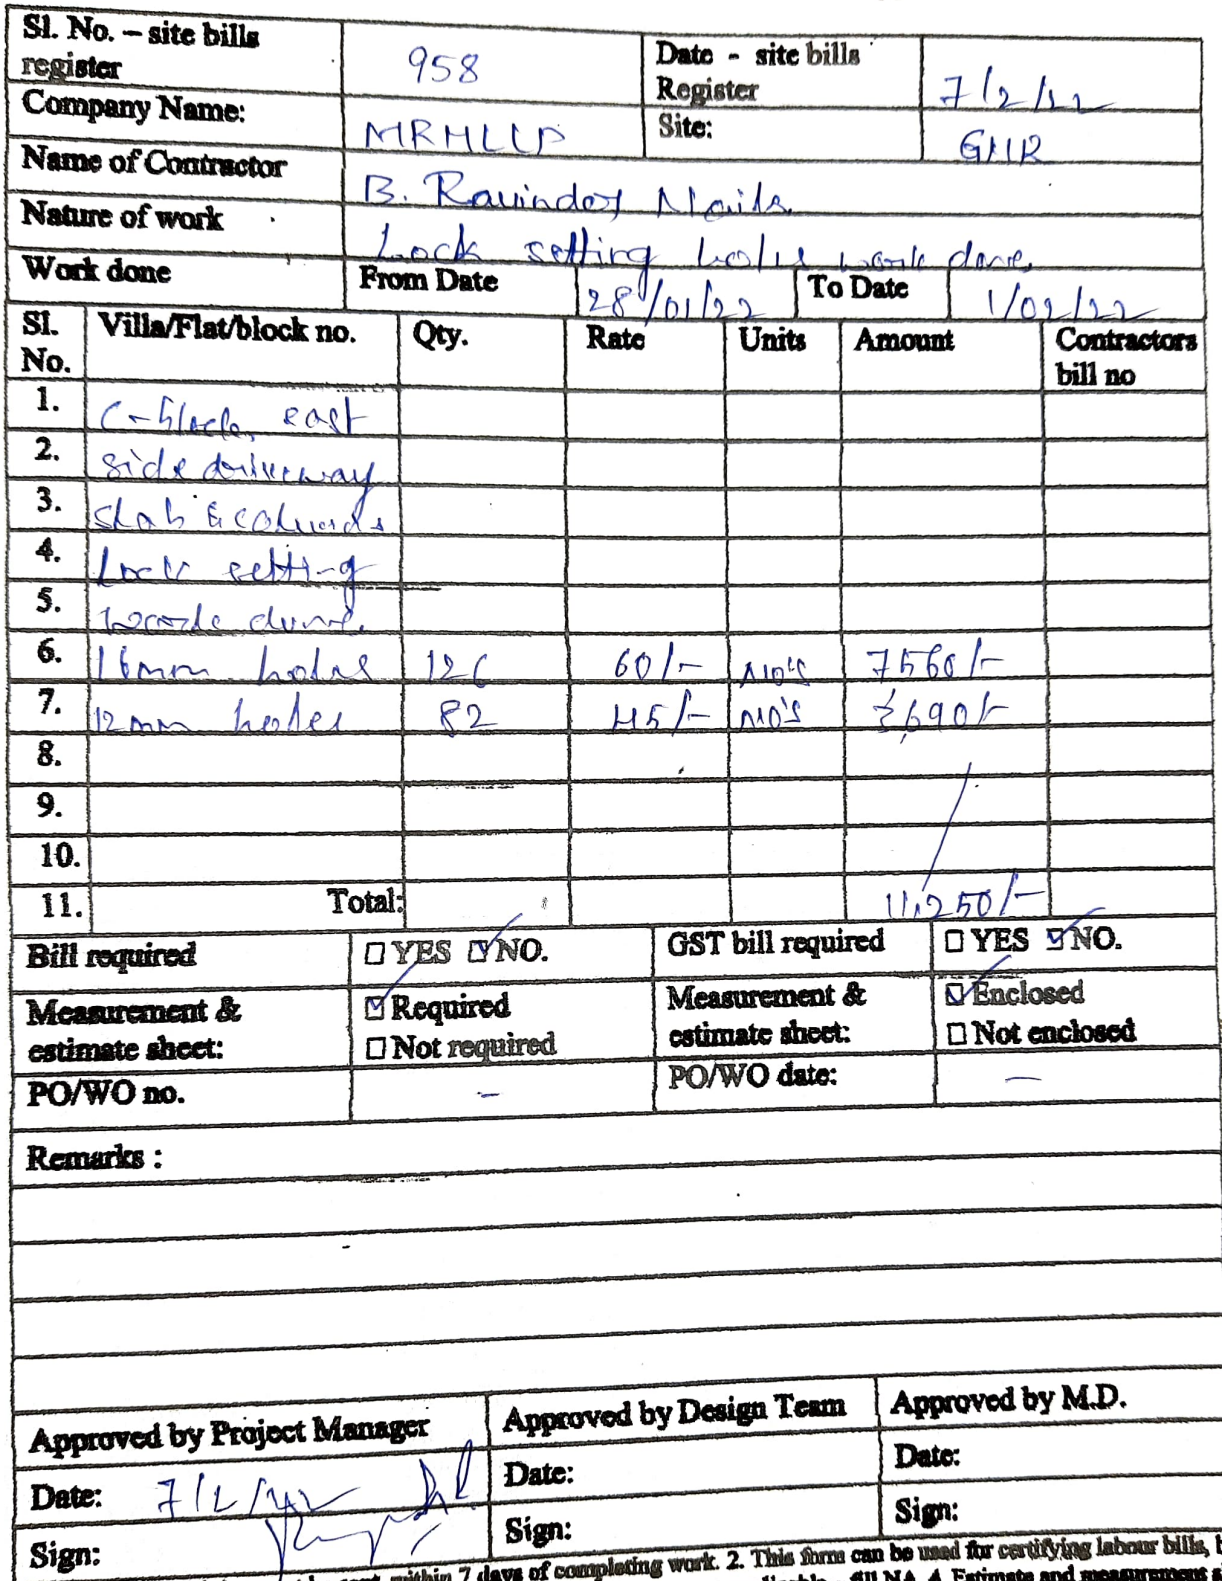 Sl. No. – site bills register 958 Date - site bills Register 7/2/22
Company Name: MRHLLP Site: GMR
Name of Contractor B. Ravinder Naik
Nature of work Lock setting holes work done
Work done From Date 28/01/22 To Date 1/02/22
Sl. No. Villa/Flat/block no. Qty. Rate Units Amount Contractors bill no
1. C-block, east
2. side driveway
3. slab &
4. Lock setting
5. work done.
6. 16mm holes 126 60/- NO'S 7560/-
7. 12mm holes 82 45/- NO'S 3,690/-
8.
9.
10.
11. Total: 11,250/-
Bill required YES NO. GST bill required YES NO.
Measurement & estimate sheet: Required Not required Measurement & estimate sheet: Enclosed Not enclosed
PO/WO no. - PO/WO date: -
Remarks :
Approved by Project Manager Approved by Design Team Approved by M.D.
Date: 7/2/22 Date: Date:
Sign: Sign: Sign:
within 7 days of completing work. 2. This form can be used for certifying labour bills,
fill NA. 4. Estimate and measurement